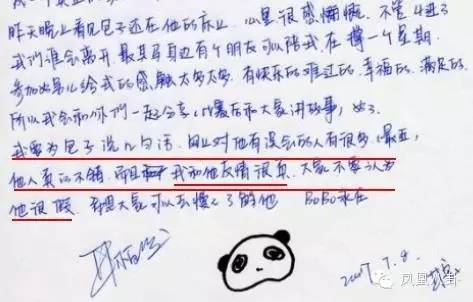 昨天晚上看见包子还在他的床上 心里很感慨 不管4进3
我们谁会离开 最其马身边有个朋友可以陪我在撑一个星期
参加好男儿给我的感触太多太多 有快乐的 难过的 幸福的 满足的
所以我会和你们一起分享 以后在和大家讲故事
我要为包子说几句话 网上对他有误会的人有很多
他人真的不错 而且 我和他友情很真 大家不要认为
他很假 希望大家可以去慢慢了解他 BOBO永在
2007.7.8
凤凰八卦